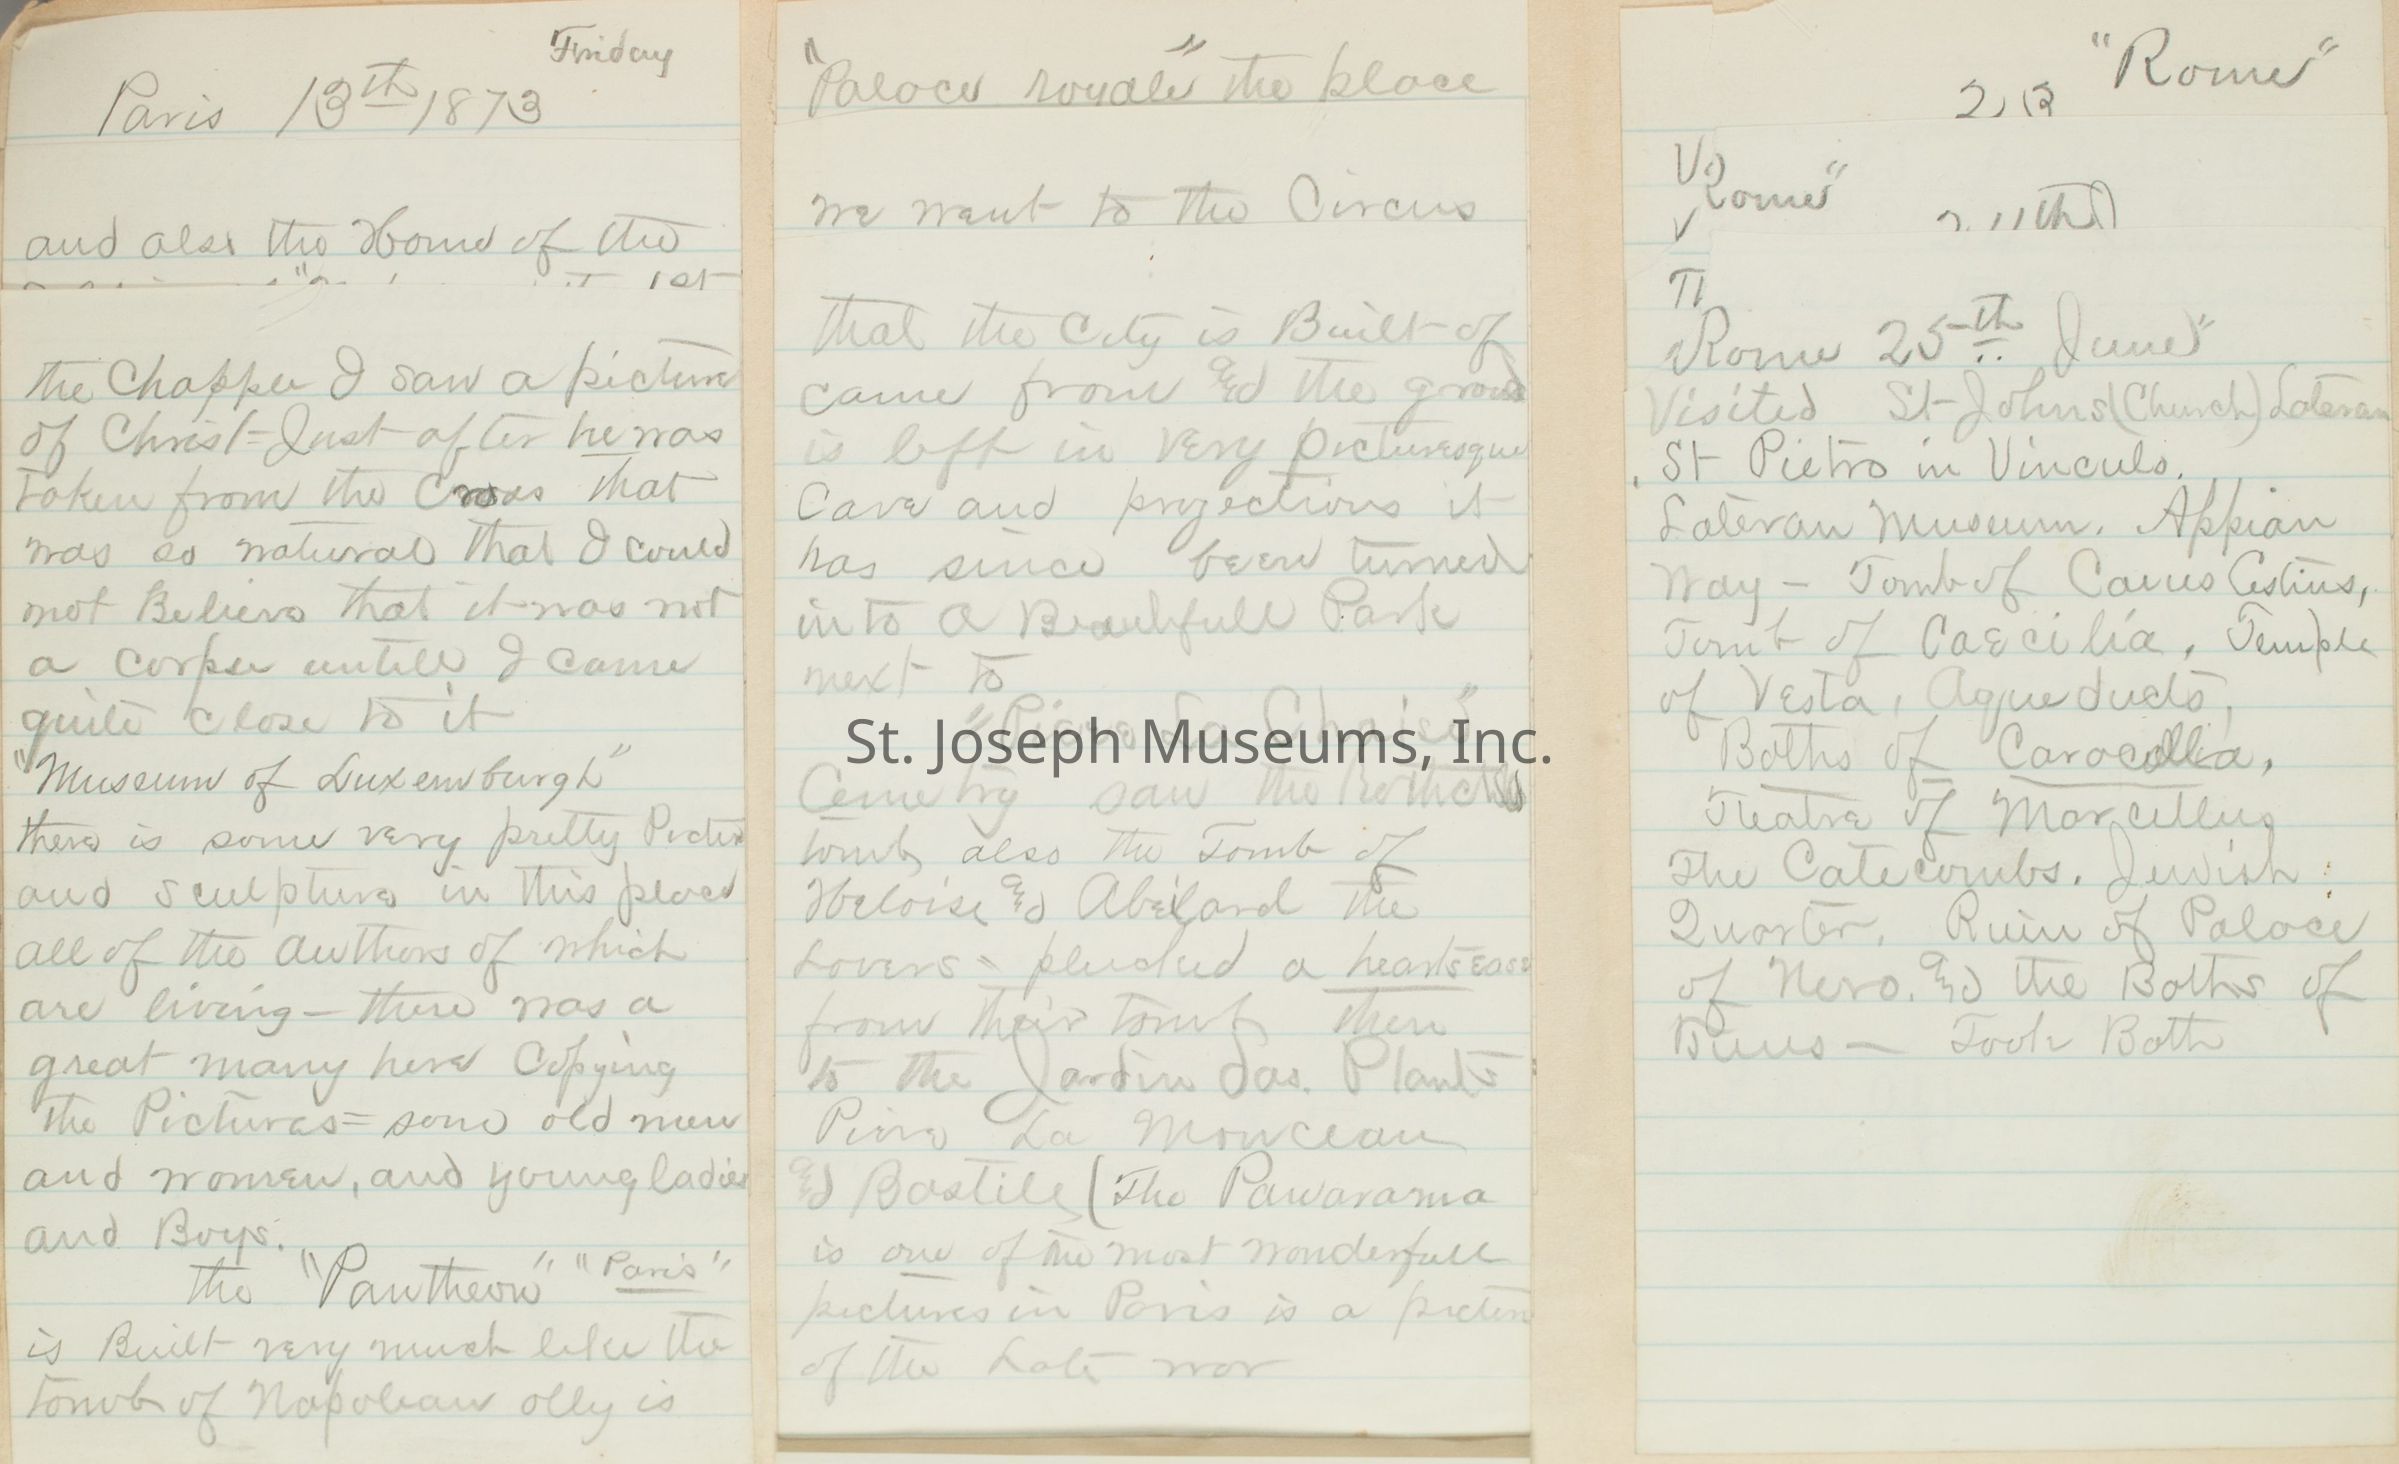 "Friday
Paris 13th 1873
and also the Home of the
1st
the Chappe I saw a picture
of Christ = Just after he was
taken from the Cross that
was so natural that I could
not Believe that it was not
a corpse untill I came
quite close to it
"Museum of Luxemburgh"
there is some very pretty
and sculpture in this place
all of the authors of which
are living - there was a
great many here Copying
the Pictures = some old men
and women, and young ladies
and Boys.
the "Pantheon" "Paris"
is Built very much like the
tomb of Napolean olly is
"Palace royale" the place
we went to the Circus
that the City is Built of
came from and the ground
is left in very picturesque
Cave and projections it
has since been turned
into a Beautifull Park
next to
St. Joseph Museums, Inc.
Cemetry saw the
tomb also the Tomb of
Heloise and Abelard the
Lovers - plucked a heartsease
from their tomb then
to the Jardin das. Plants
Piere La Monceau
and Bastile (The Panarama
is one of the most wonderfull
pictures in Paris is a picture
of the Late war
"Rome"
Rome"
Rome 25th June"
Visited St Johns (Church) Lateran
St Pietro in Vinculo.
Lateran Museum. Appian
Way - Tomb of Caius Cestius,
Tomb of Caecilia, Temple
of Vesta, Aqueducts,
Baths of Caracalla,
Theatre of Marcellus
The Catecombs. Jewish
Quarter. Ruin of Palace
of Nero. and the Baths of
Took Bath